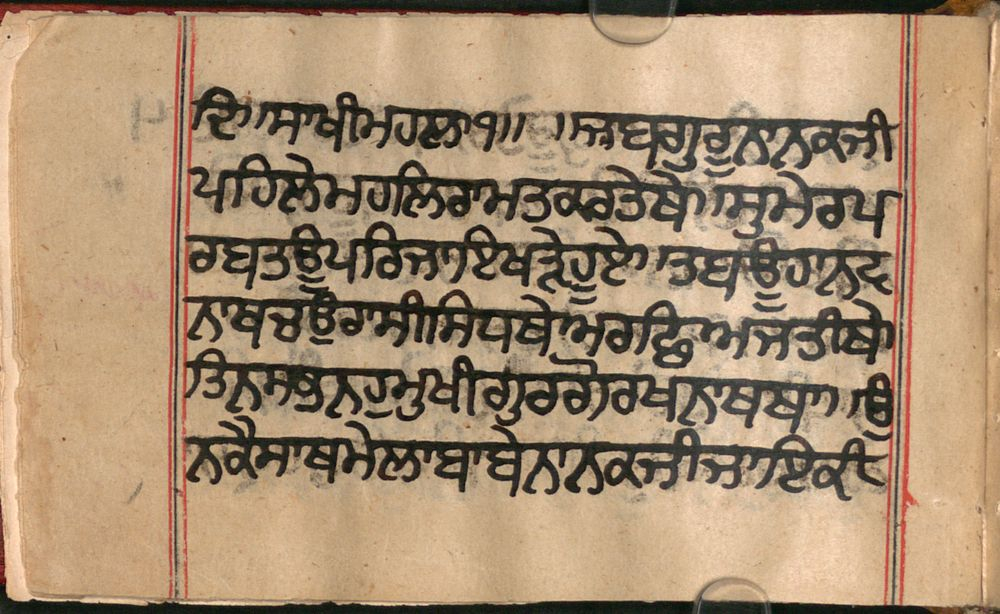 ਦਿ।।ਸਾਖੀਮਹਲਾ੧।। ।।ਜਬਗੁਰੂਨਾਨਕਜੀ
ਪਹਿਲੇਮਹਲਿਰਾਮਤਕਰਤੇਥੇ।।ਸੁਮੇਰਪ
ਰਬਤਊਪਰਿਜਾਇਖੜੇਹੂਏ।।ਤਬਊਹਾਨਵ
ਨਾਥਚਉਰਾਸੀਸਿਧਥੇ।ਅਰਛਿਅਜਤੀਥੇ
ਤਿਨਸਭਨਹੁਮੁਖੀਗੁਰਗੋਰਖਨਾਥਥਾ।।ਉ
ਨਕੈਸਾਥਮੇਲਾਬਾਬੇਨਾਨਕਜੀਜਾਇਕੀ